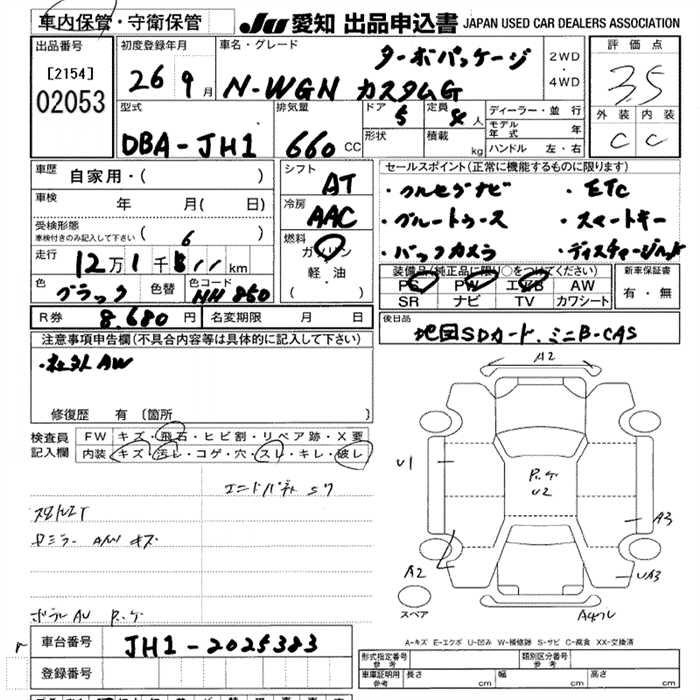 車内保管・守衛保管
JU 愛知 出品申込書 JAPAN USED CAR DEALERS ASSOCIATION
出品番号
[2154]
02053
初度登録年月
26 9月
車名・グレード
ターボパッケージ
N-WGN カスタムG
2WD
・
4WD
評価点
3.5
外装 内装
C C
型式
DBA-JH1
排気量
660 CC
ドア 5
定員 4人
形状
積載 kg
ディーラー・並行
モデル年式 年
ハンドル 左・右
車歴
自家用・( )
車検 年 月( 日)
受検形態
車検付きのみ記入して下さい ( 6 )
走行
12万1千 km
色 ブラック
色替
色コード
NH850
シフト
AT
冷房
AAC
燃料
ガソリン
軽・油
( )
セールスポイント(正常に機能するものに限ります)
・フルセグナビ ・ETC
・ブルートゥース ・スマートキー
・バックカメラ ・ディスチャージ
装備品(純正品に限り○をつけてください)
PS PW エアB AW
SR ナビ TV カワシート
新車保証書
有・無
R券 8,680円
名変期限 月 日
後日品
地図SDカード、ミニB-CAS
注意事項申告欄(不具合内容等は具体的に記入して下さい)
・社外AW
修復歴 有 〔箇所 〕
検査員記入欄
FW キズ・飛石・ヒビ割・リペア跡・X要
内装 キズ・汚レ・コゲ・穴・スレ・キレ・破レ
キズ
A2
U1
U2
A3
A2
UA3
スペア
A-キズ E-エクボ U-凹み W-補修跡 S-サビ C-腐食 XX-交換済
車台番号 JH1-2025383
登録番号
形式指定番号
参考
類別区分番号
参考
車庫証明用
参考
長さ 幅 高さ